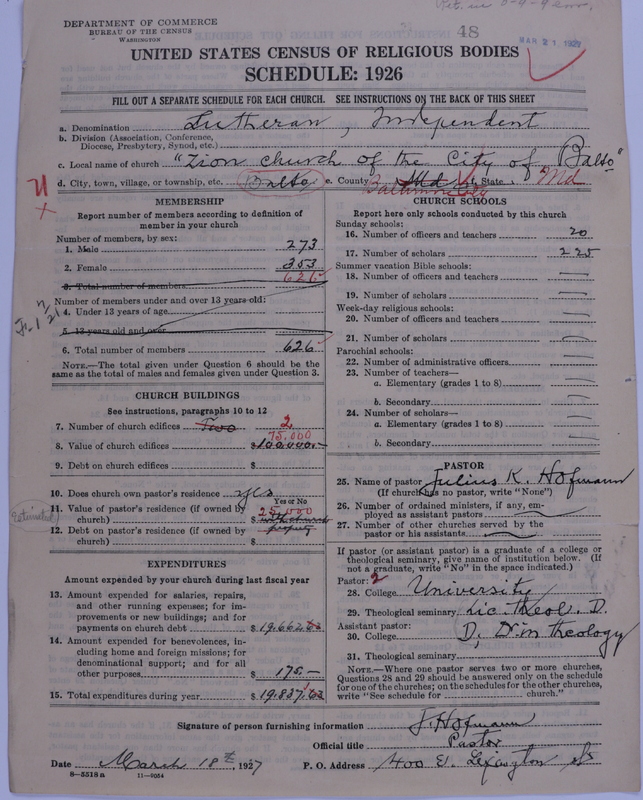 DEPARTMENT OF COMMERCE
BUREAU OF THE CENSUS
WASHINGTON
48
MAR 21 1927
UNITED STATES CENSUS OF RELIGIOUS BODIES
SCHEDULE: 1926
FILL OUT A SEPARATE SCHEDULE FOR EACH CHURCH. SEE INSTRUCTIONS ON THE BACK OF THIS SHEET
a. Denomination Lutheran, Independent
b. Division (Association, Conference, Diocese, Presbytery, Synod, etc.)
c. Local name of church "Zion church of the City of Balto"
d. City, town, village, or township, etc. Balto e. County Md Baltimore City State Md
MEMBERSHIP
Report number of members according to definition of member in your church
Number of members, by sex:
1. Male 273
2. Female 353
626
3. Total number of members
Number of members under and over 13 years old:
4. Under 13 years of age
5. 13 years old and over
6. Total number of members 626
NOTE.—The total given under Question 6 should be the same as the total of males and females given under Question 3.
CHURCH BUILDINGS
See instructions, paragraphs 10 to 12
7. Number of church edifices Two 2
75,000
8. Value of church edifices $100000.—
9. Debt on church edifices $
10. Does church own pastor's residence yes
Yes or No
11. Value of pastor's residence (if owned by church) $ 25,000
12. Debt on pastor's residence (if owned by church) $ property
EXPENDITURES
Amount expended by your church during last fiscal year
13. Amount expended for salaries, repairs, and other running expenses; for improvements or new buildings; and for payments on church debt $19.662
14. Amount expended for benevolences, including home and foreign missions; for denominational support; and for all other purposes $175.—
15. Total expenditures during year $19.837.63
CHURCH SCHOOLS
Report here only schools conducted by this church
Sunday schools:
16. Number of officers and teachers 20
17. Number of scholars 225
Summer vacation Bible schools:
18. Number of officers and teachers —
19. Number of scholars —
Week-day religious schools:
20. Number of officers and teachers —
21. Number of scholars —
Parochial schools:
22. Number of administrative officers —
23. Number of teachers—
a. Elementary (grades 1 to 8) —
b. Secondary —
24. Number of scholars—
a. Elementary (grades 1 to 8) —
b. Secondary —
PASTOR
25. Name of pastor Julius K. Hofmann
(If church has no pastor, write "None")
26. Number of ordained ministers, if any, employed as assistant pastors —
27. Number of other churches served by the pastor or his assistants —
If pastor (or assistant pastor) is a graduate of a college or theological seminary, give name of institution below. (If not a graduate, write "No" in the space indicated.)
Pastor: 2
28. College University
29. Theological seminary Lic. theol. D.
Assistant pastor:
30. College D, Dr in theology
31. Theological seminary
NOTE.—Where one pastor serves two or more churches, Questions 28 and 29 should be answered only on the schedule for one of the churches; on the schedules for the other churches, write "See schedule for church."
Signature of person furnishing information J. Hofmann
Official title Pastor
Date March 18th, 1927 P. O. Address 400 E. Lexington St
8—5518a 11—9054